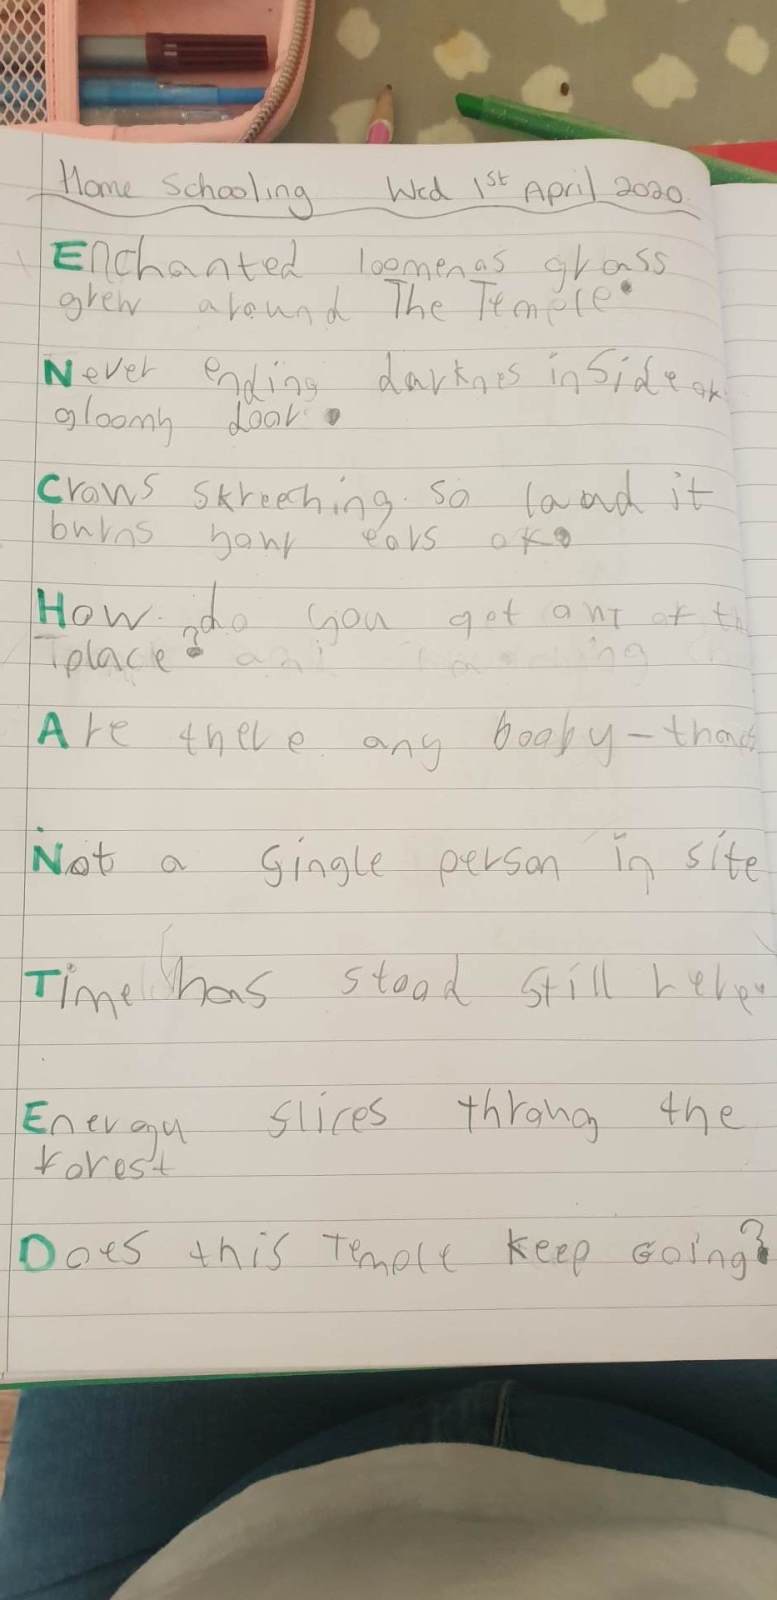 Home Schooling Wed 1st April 2020
Enchanted loomenas grass
grew around The Temple.
Never ending darknes inside a
gloomy door.
Crows skreeching so loud it
burns your ears
How do you get out of
place?
Are there any booby-
Not a single person in site
Time has stood still here
Energy slices throug the
forest
Does this Temple keep Going?